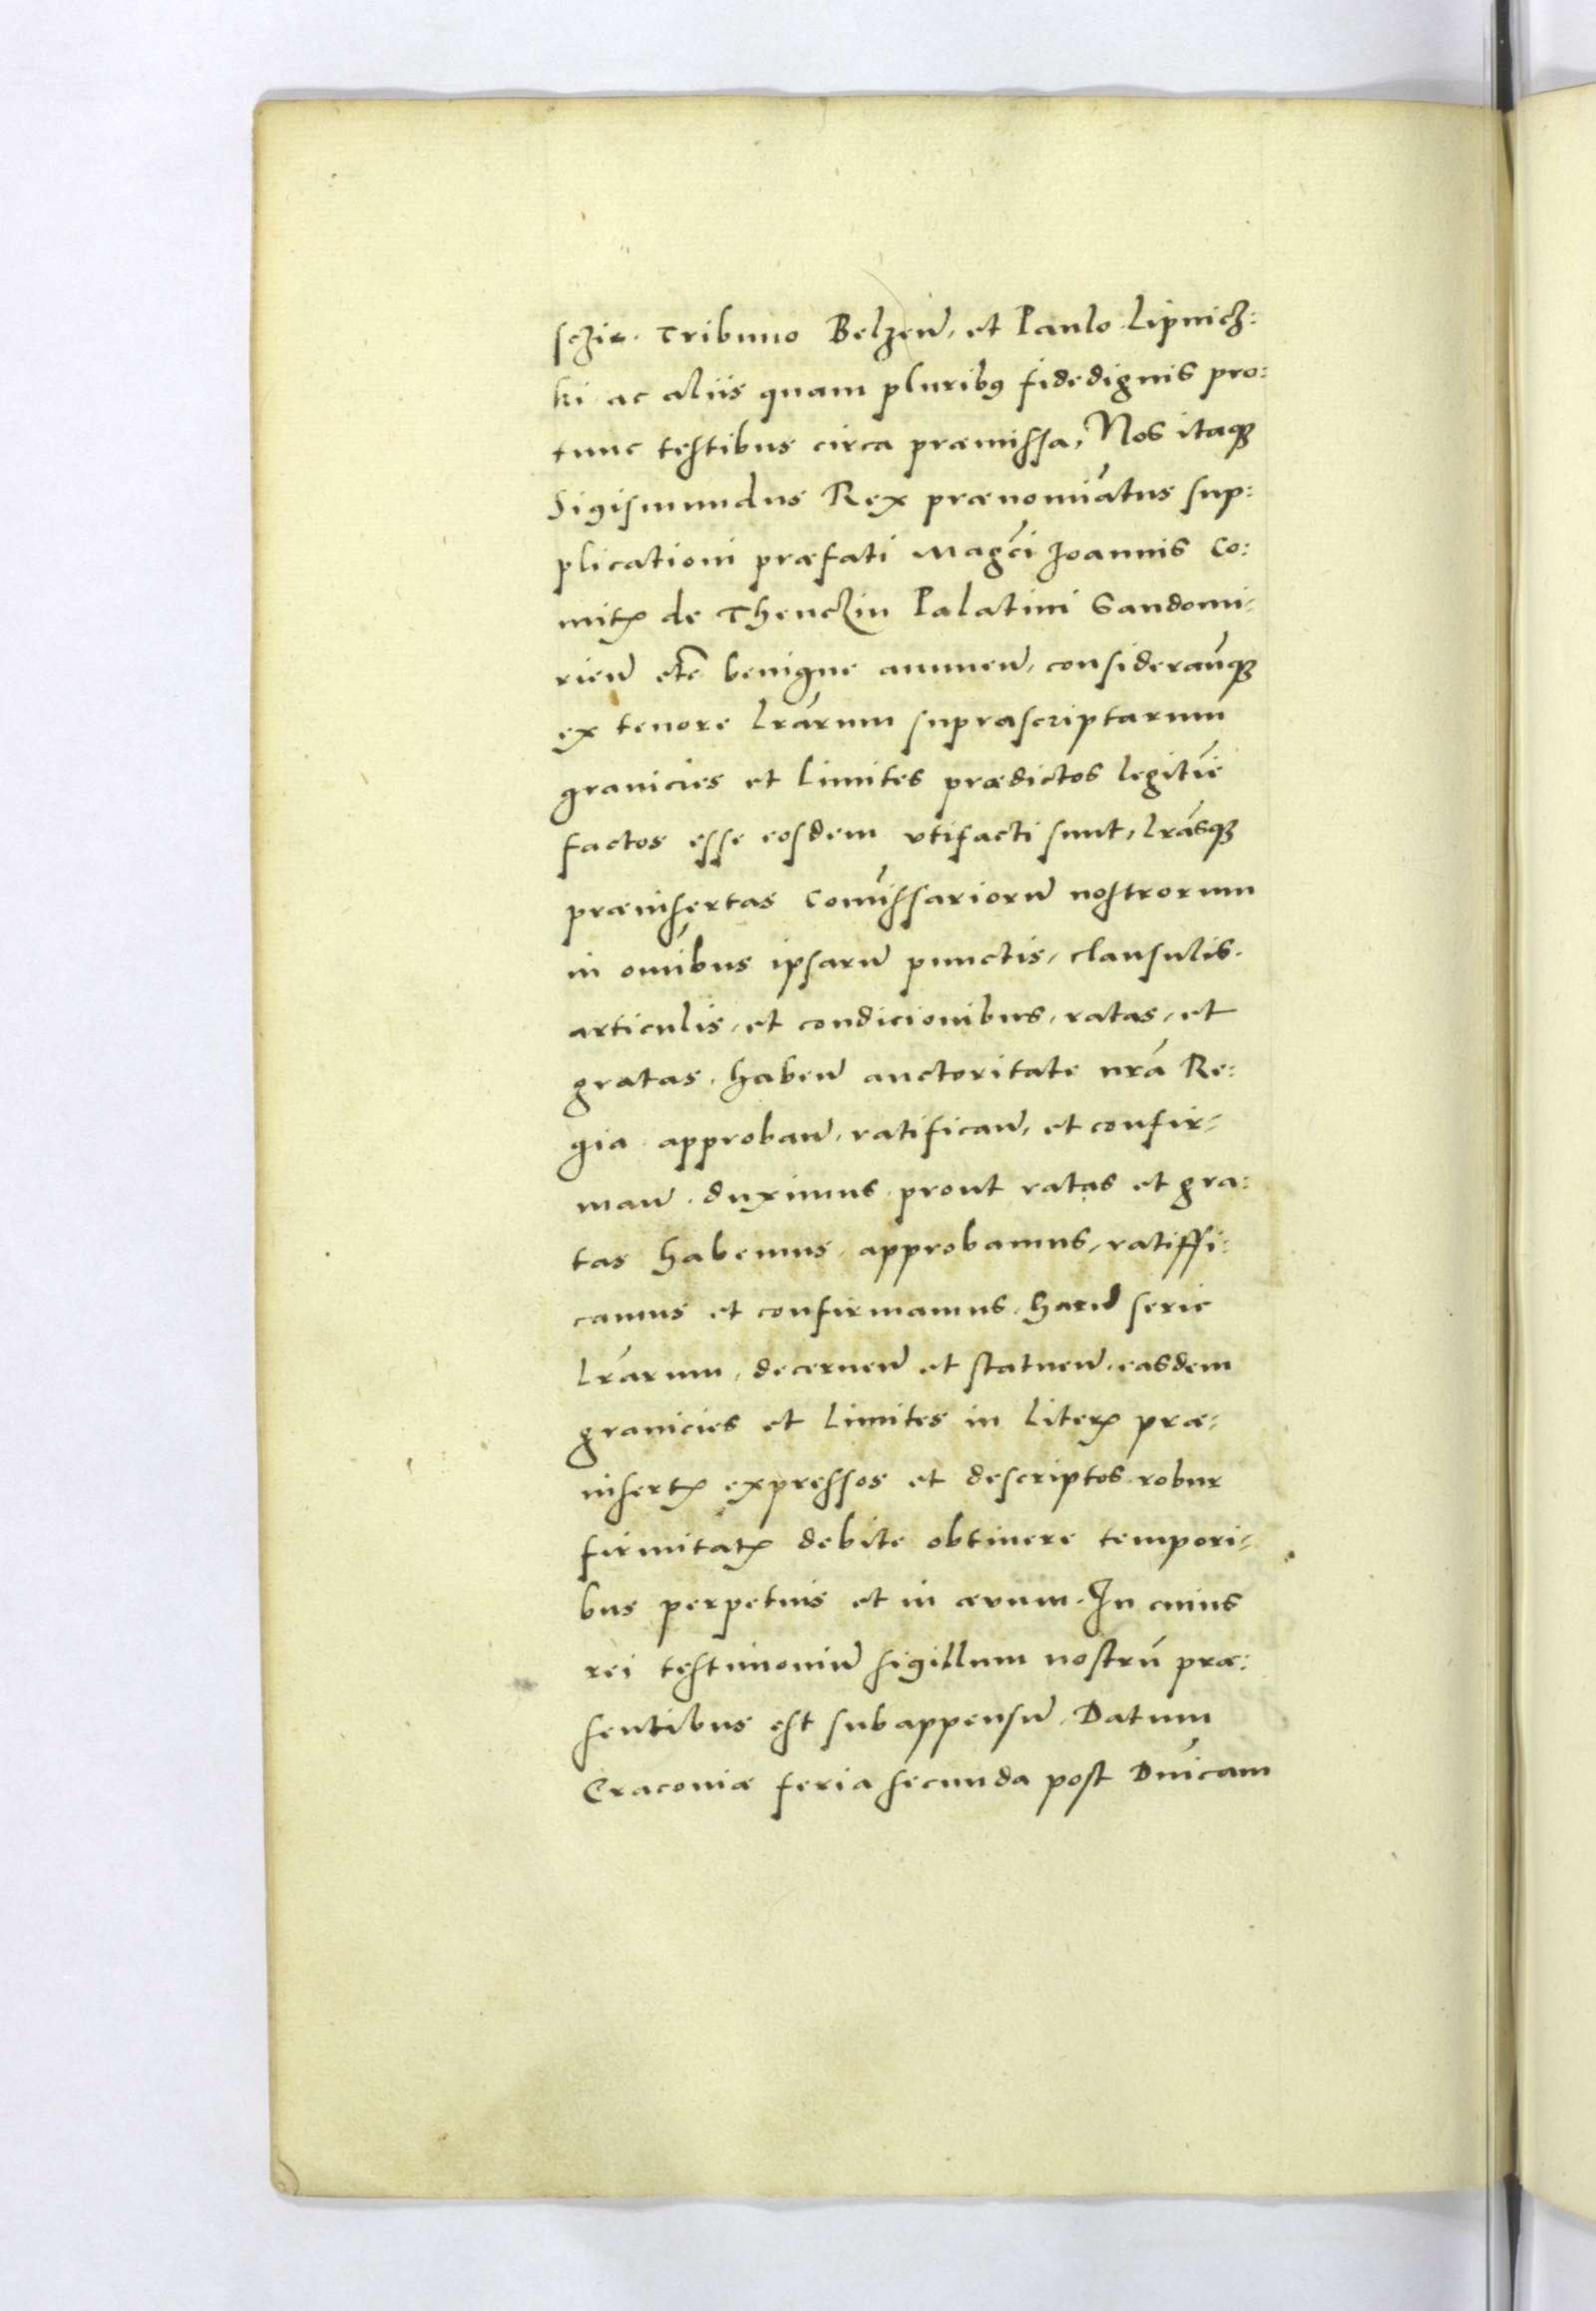 sczie. Tribuno Belzen̄, et Paulo Lipnicz:
ki ac aliis quam pluribꝰ fidedignis pro:
tunc testibus circa præmissa, Nos itaqꝫ
Sigismundus Rex prænomīatus sup:
plicationi præfati Magc̄i Joannis Co:
mitꝭ de Thenczin Palatini Sandomi-
rien̄ etc̄ benigne annuen̄, consideran̄qꝫ
ex tenore l̄rarum suprascriptarum
granicies et limites prædictos legitīe
factos esse eosdem vti facti sunt, l̄rasqꝫ
præinsertas Com̄issariorū nostrorum
in om̄ibus ipsarū punctis, clausulis.
articulis, et condicionibus, ratas, et
gratas, haben̄ auctoritate nr̄a Re:
gia approban̄, ratifican̄, et confir-
man̄. duximus prout ratas et gra:
tas habemus, approbamus, ratiffi:
camus et confirmamus, harū serie
l̄rarum, decernen̄ et statuen̄, easdem
granicies et limites in literꝭ præ-
insertꝭ expressos et descriptos robur
firmitatꝭ debite obtinere tempori-
bus perpetuis et in ævum. In cuius
rei testimoniū sigillum nostrū præ:
sentibus est subappensū. Datum
Cracoviæ feria secunda post Dn̄icam